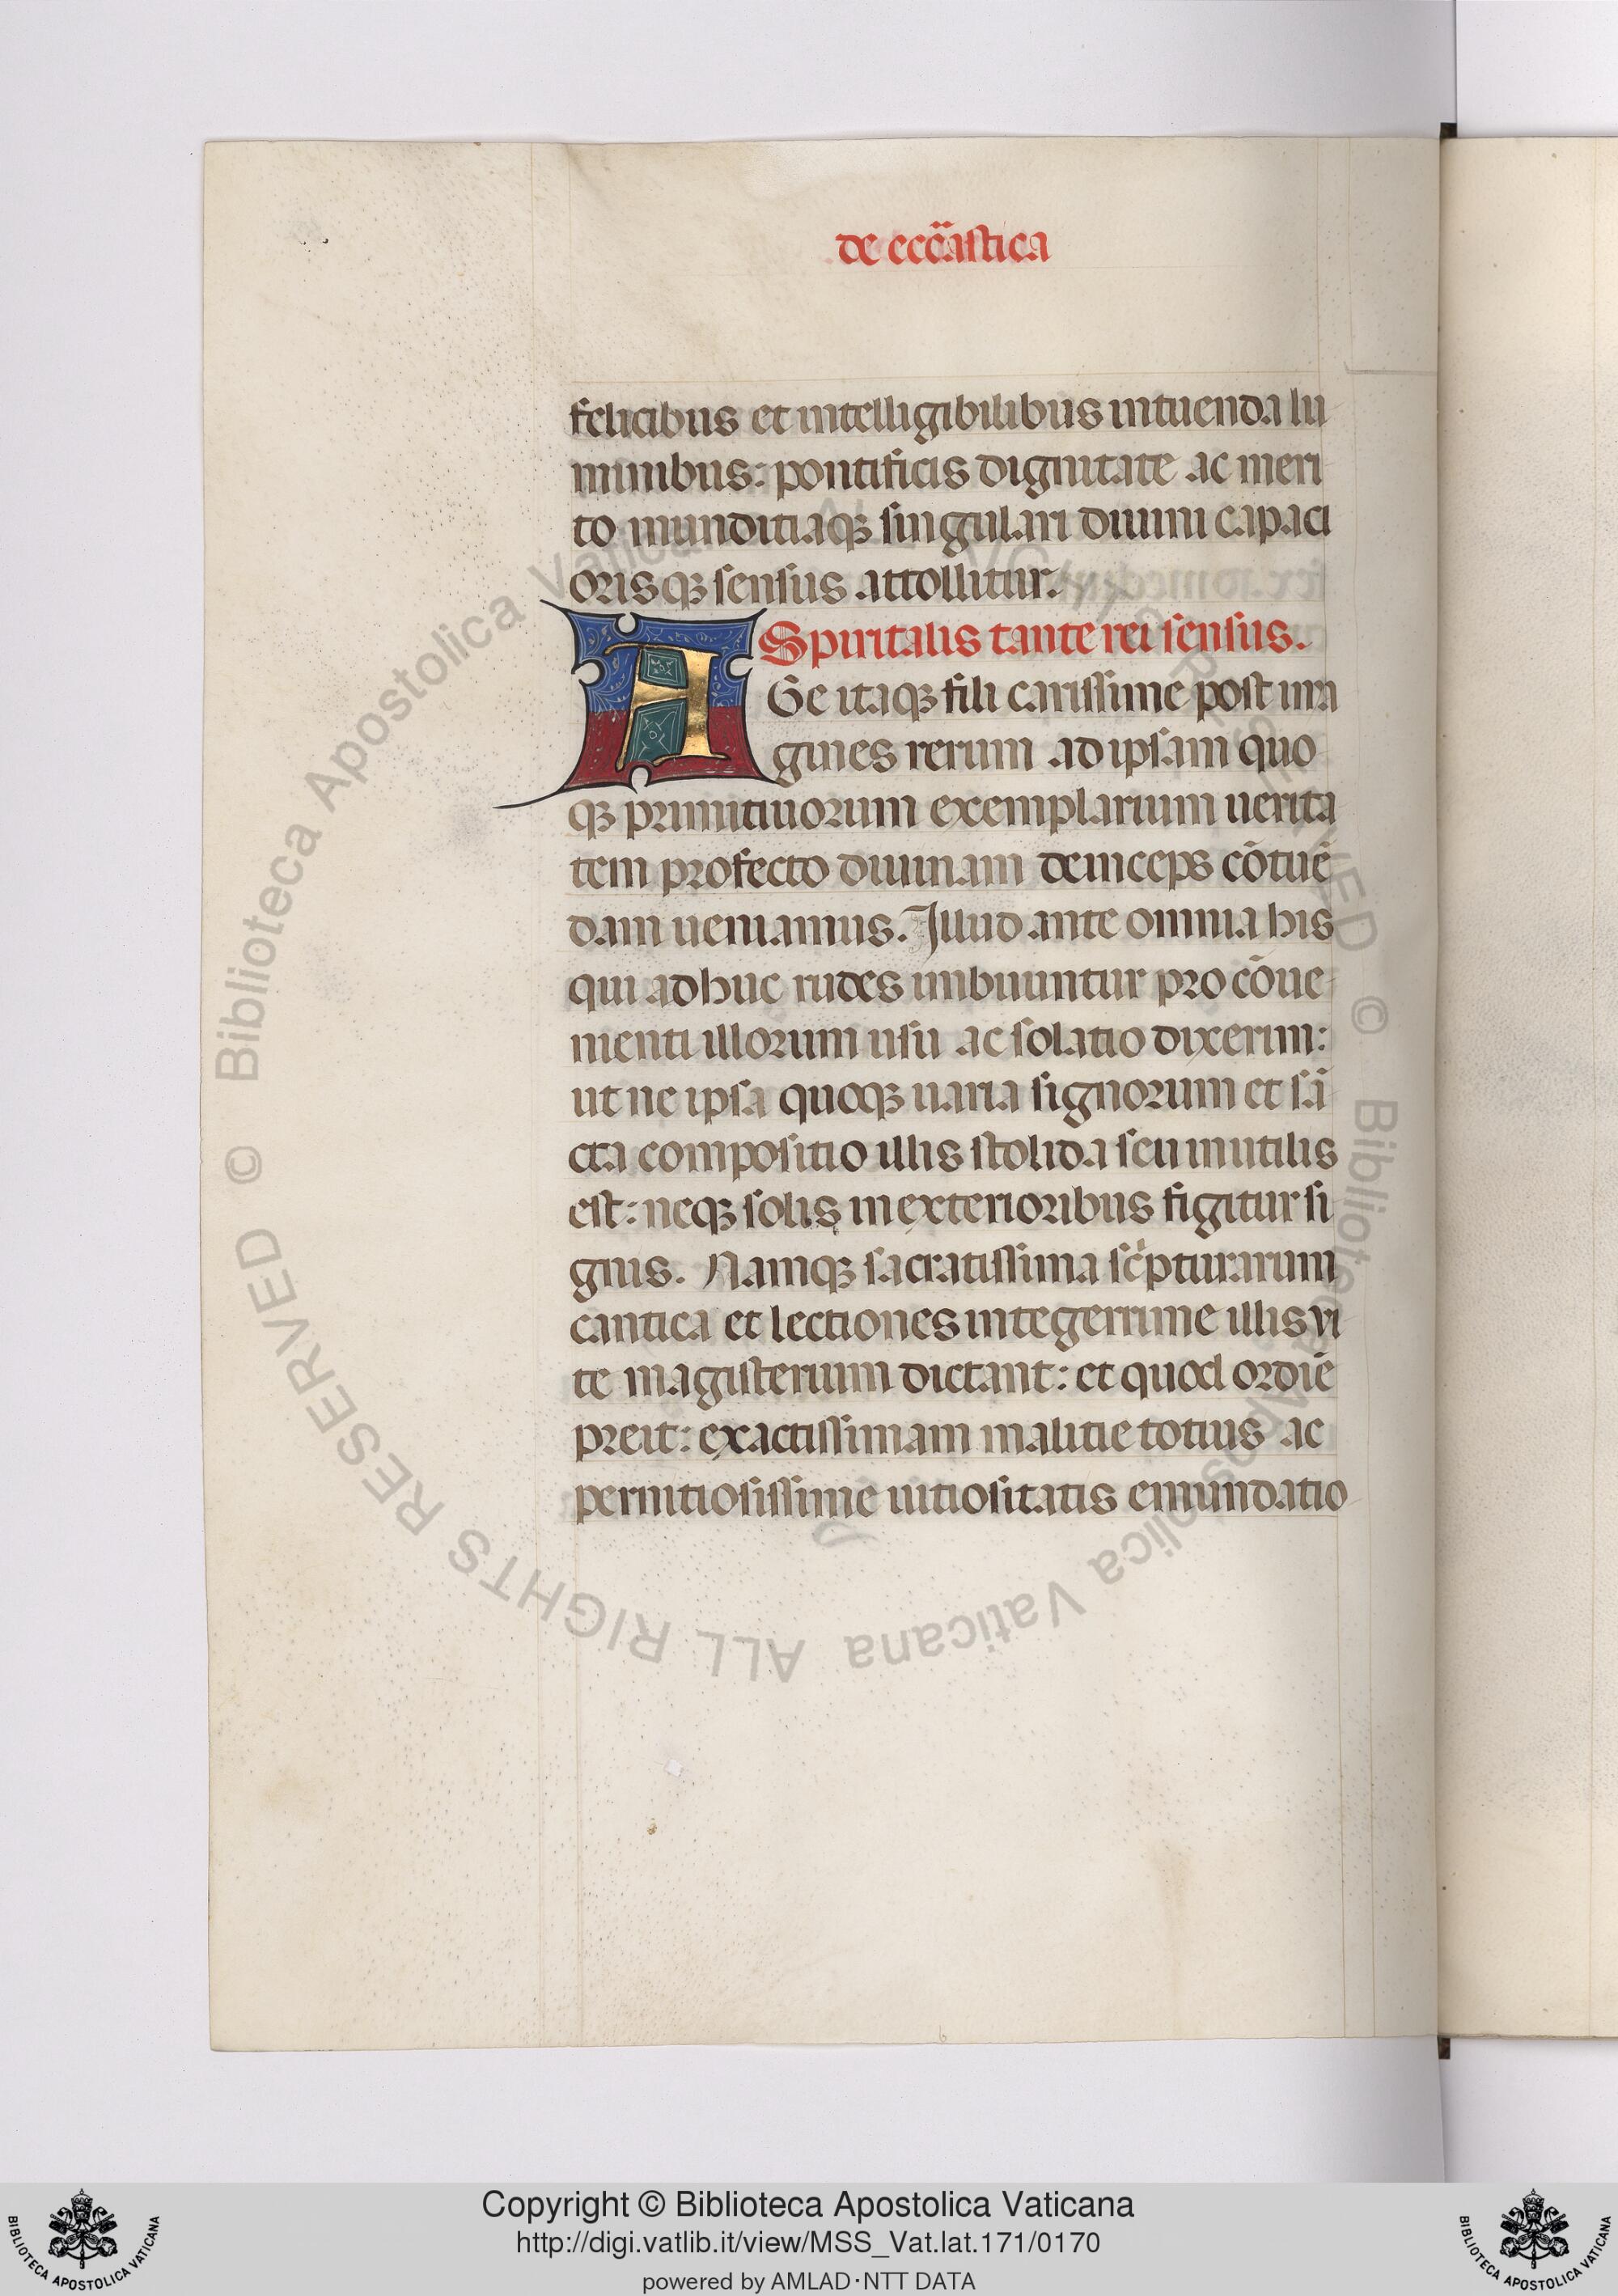 de ecc̄astica
felicibus et intelligibilibus intuenda lu
minibus: pontificis dignitate ac meri
to munditiaqꝫ singulari diuini capaci
orisqꝫ sensus attollitur.
Spiritalis tante rei sensus.
AGe itaqꝫ fili carissime post ima
gines rerum ad ipsam quo
qꝫ primitiuorum exemplarium uerita
tem profecto diuinam deinceps cōtuē
dam ueniamus. Illud ante omnia his
qui adhuc rudes imbuuntur pro cōue
nienti illorum usu ac solatio dixerim:
ut ne ipsa quoqꝫ uaria signorum et sā
cta compositio illis stolida seu inutilis
est: neqꝫ solis in exterioribus figitur si
gnis. Namqꝫ sacratissima sc̄pturarum
cantica et lectiones integerrime illis vi
te magisterium dictant: et quod ordiē
preit: exactissimam malitie totius ac
pernitiosissime uitiositatis emundatio
© Biblioteca Apostolica Vaticana ALL RIGHTS RESERVED © Biblioteca Apostolica Vaticana ALL RIGHTS RESERVED
Copyright © Biblioteca Apostolica Vaticana
http://digi.vatlib.it/view/MSS_Vat.lat.171/0170
powered by AMLAD·NTT DATA
BIBLIOTECA APOSTOLICA VATICANA
BIBLIOTECA APOSTOLICA VATICANA